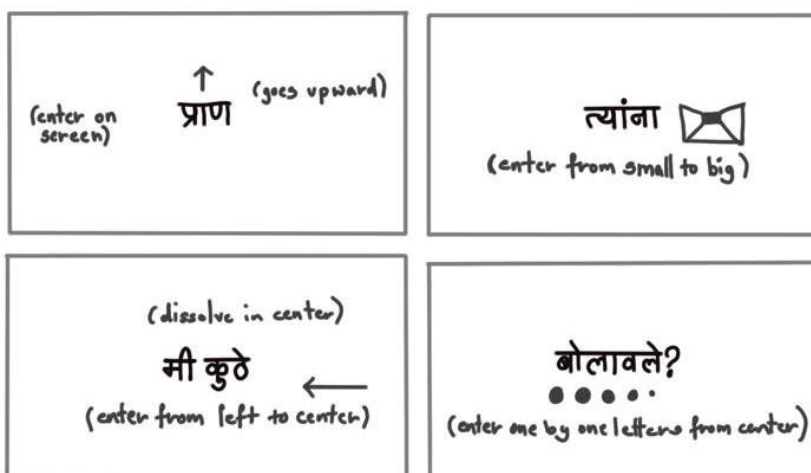 (enter on
sereen)
प्राण
(goes upward)
त्यांना
(enter from small to big)
(dissolve in center)
मी कुठे
(enter from left to center)
बोलावले?
(enter one by one letters from center)